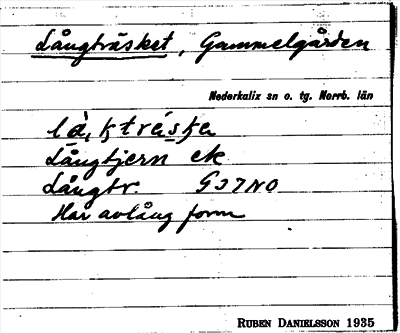 Långträsket, Gammelgården
Nederkalix sn o. tg. Norrb. län
Långtjern ek
Långtr. G J 7 N O
Har avlång form
RUBEN DANIELSSON 1935